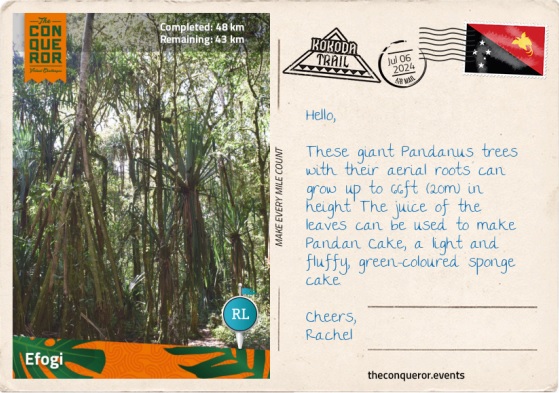 The
CONQUEROR
Completed: 48 km
Remaining: 43 km
KOKODA
TRAIL
Jul 06
2024
AIR MAIL
MAKE EVERY MILE COUNT
Hello,
These giant Pandanus trees
with their aerial roots can
grow up to 66ft (20m) in
height. The juice of the
leaves can be used to make
Pandan Cake, a light and
fluffy, green-coloured sponge
cake.
Cheers,
Rachel
RL
Efogi
theconqueror.events